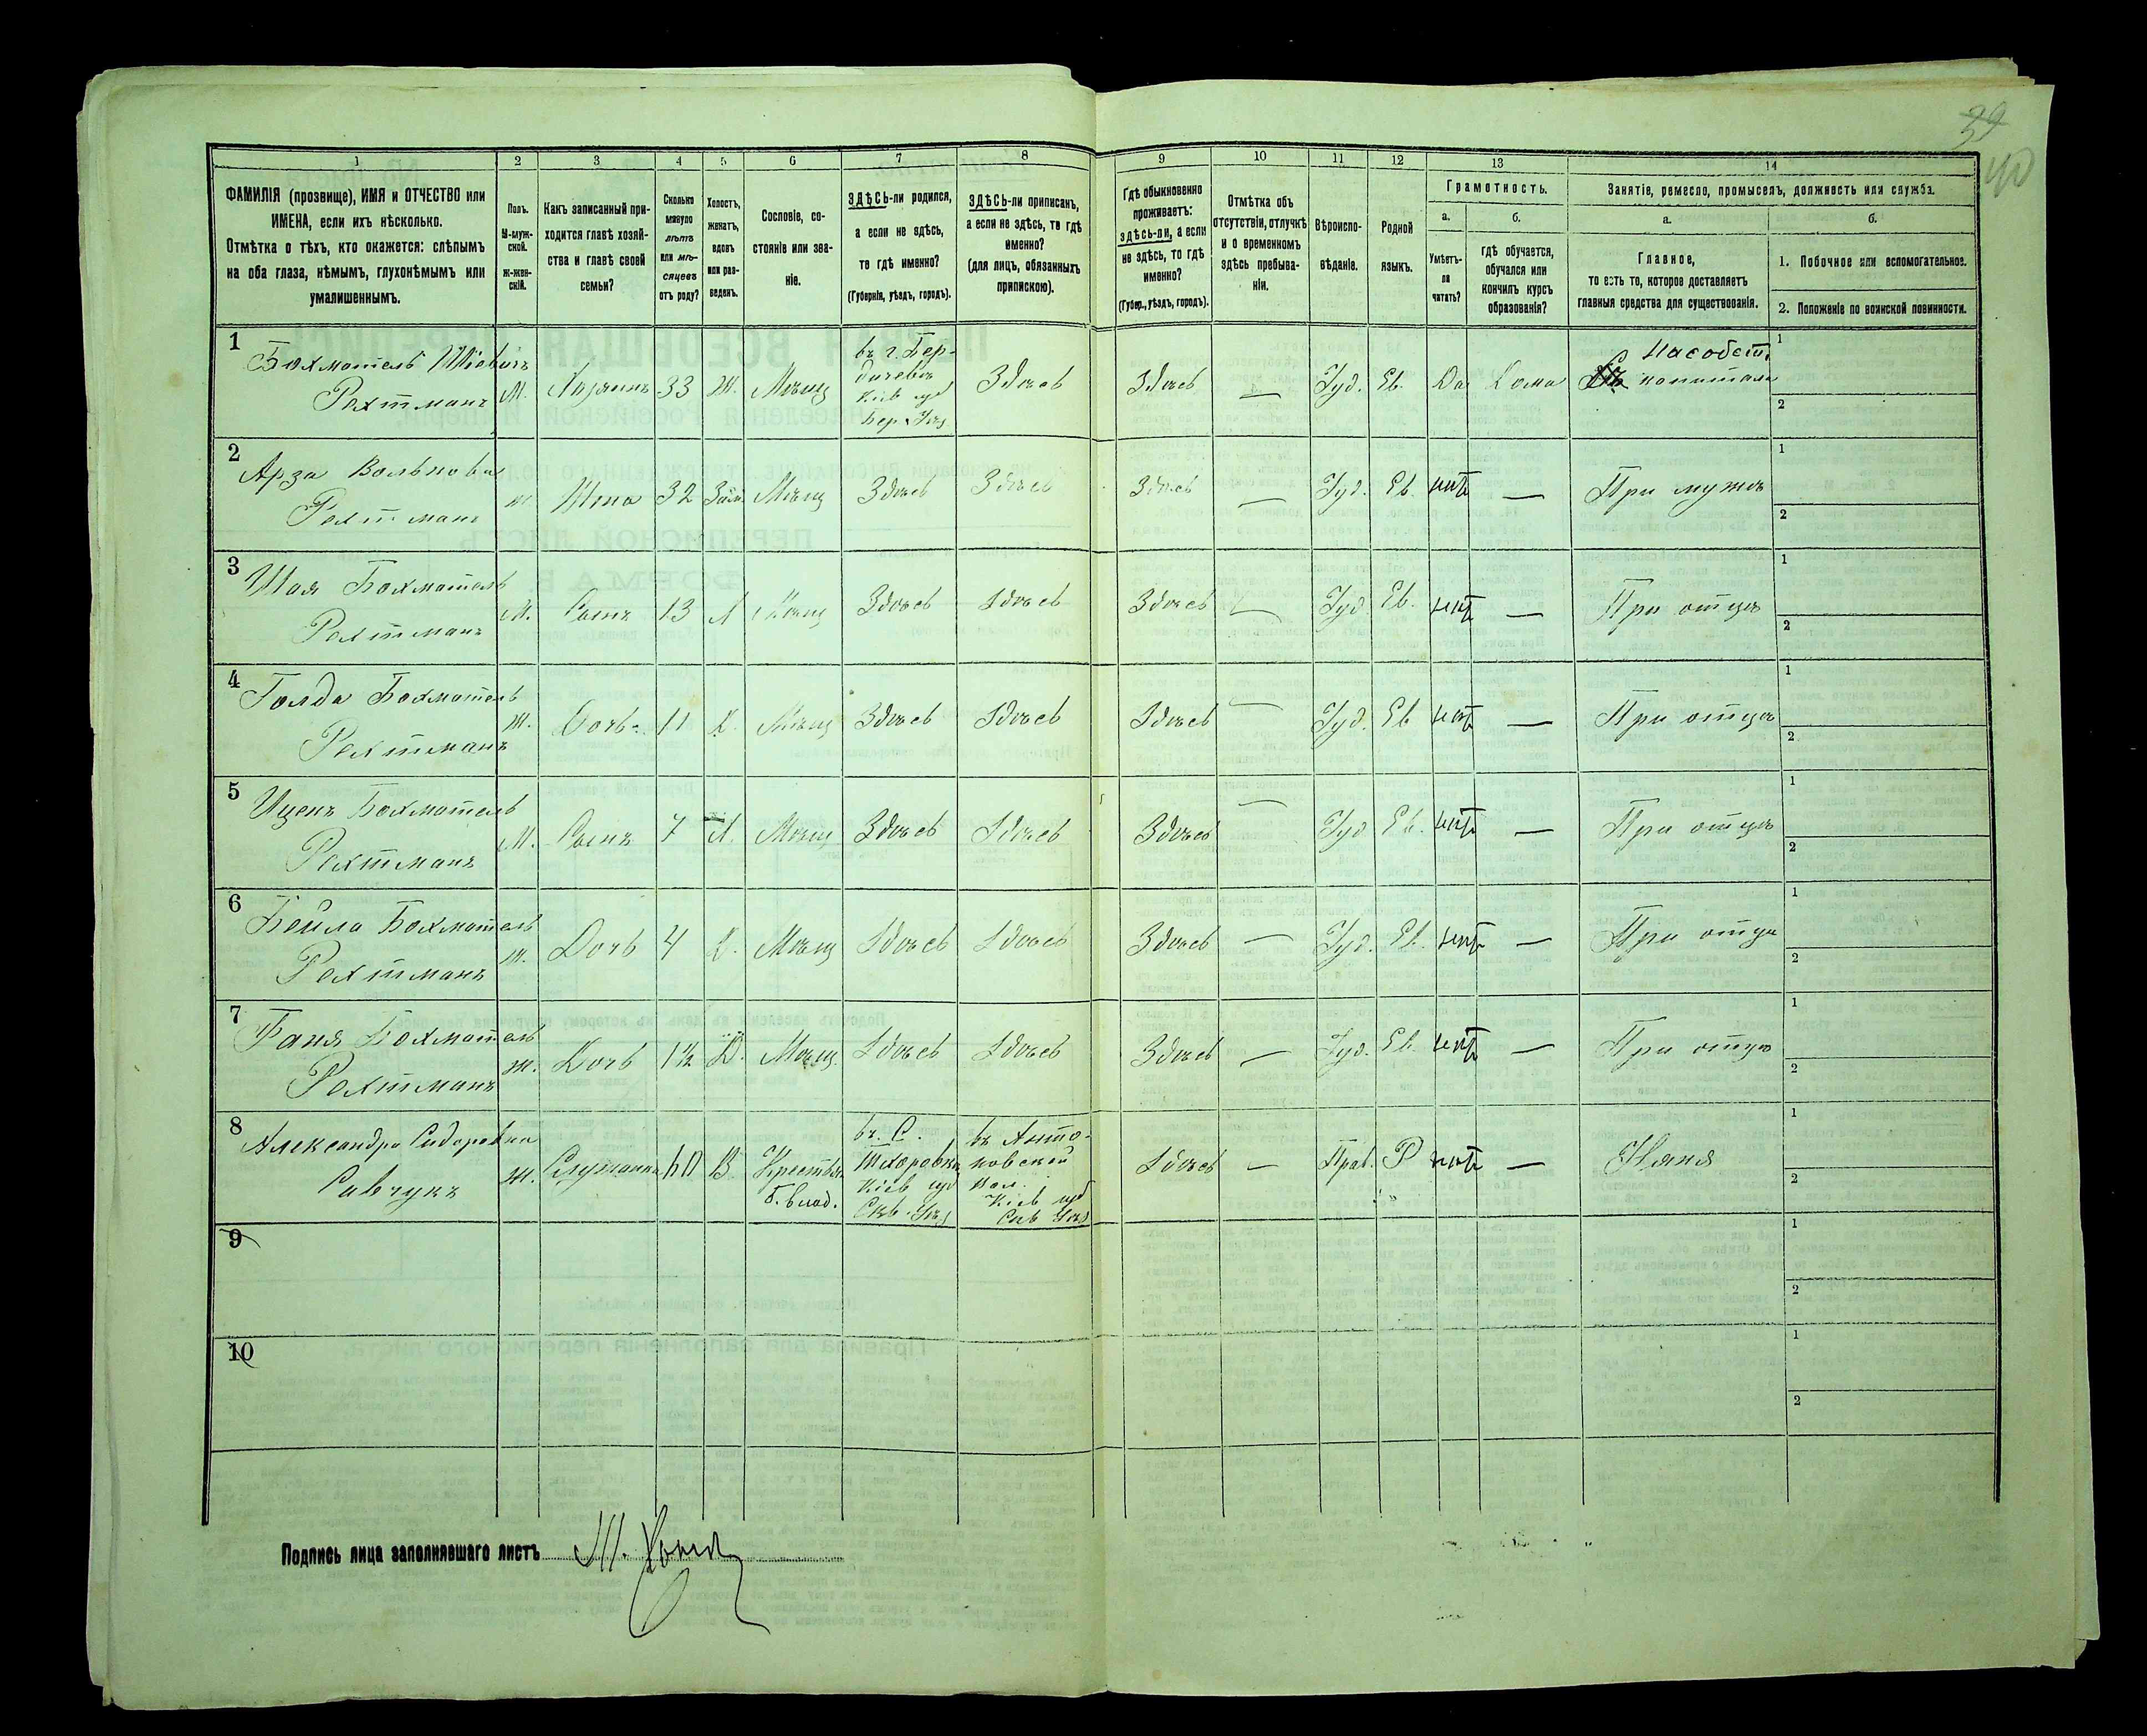 39
40
1 2 3 4 5 6 7 8 9 10 11 12 13 14
ФАМИЛІЯ (прозвище), ИМЯ и ОТЧЕСТВО или
ИМЕНА, если ихъ нѣсколько.
Отмѣтка о тѣхъ, кто окажется: слѣпымъ
на оба глаза, нѣмымъ, глухонѣмымъ или
умалишеннымъ.
Полъ.
М-муж-
ской.
Ж-жен-
скій.
Какъ записанный при-
ходится главѣ хозяй-
ства и главѣ своей
семьи?
Сколько
минуло
лѣтъ
или мѣ-
сяцевъ
отъ роду?
Холостъ,
женатъ,
вдовъ
или раз-
веденъ.
Сословіе, со-
стояніе или зва-
ніе.
ЗДѢСЬ-ли родился,
а если не здѣсь,
то гдѣ именно?
(Губернія, уѣздъ, городъ).
ЗДѢСЬ-ли приписанъ,
а если не здѣсь, то гдѣ
именно?
(для лицъ, обязанныхъ
припискою).
Гдѣ обыкновенно
проживаетъ:
здѣсь-ли, а если
не здѣсь, то гдѣ
именно?
(Губер., уѣздъ, городъ).
Отмѣтка объ
отсутствіи, отлучкѣ
и о временномъ
здѣсь пребыва-
ніи.
Вѣроиспо-
вѣданіе.
Родной
языкъ.
Грамотность.
а.
Умѣетъ-
ли
читать?
б.
гдѣ обучается,
обучался или
кончилъ курсъ
образованія?
Занятіе, ремесло, промыселъ, должность или служба.
а.
Главное,
то есть то, которое доставляетъ
главныя средства для существованія.
б.
1. Побочное или вспомогательное.
2. Положеніе по воинской повинности.
1
Рехтманъ М. 33 Ж. Мѣщ
въ г. Бер-
дичевѣ
Кіев губ
Бер. Уѣз
Здѣсь Здѣсь — Іуд. Ев. Да Дома
капитала
1
2
2
Волькова
Рехтманъ ж Жена 32 Зам. Мѣщ Здѣсь Здѣсь Здѣсь — Іуд. Ев. нѣтъ — При мужѣ
1
2
3
Шая
Рехтманъ М. Сынъ 13 Х Мѣщ Здѣсь Здѣсь Здѣсь — Іуд. Ев. нѣтъ — При отцѣ
1
2
4
Голда
Рехтманъ ж. Дочь 11 Д. Мѣщ Здѣсь Здѣсь Здѣсь — Іуд. Ев нѣтъ — При отцѣ
1
2
5
Рехтманъ М. Сынъ 7 Х. Мѣщ Здѣсь Здѣсь Здѣсь — Іуд Ев. нѣтъ — При отцѣ
1
2
6
Бейла
Рехтманъ ж. Дочь 4 Д. Мѣщ Здѣсь Здѣсь Здѣсь — Іуд. Ев. нѣтъ — При отцѣ
1
2
7
Рехтманъ ж. Дочь 1½ Д. Мѣщ. Здѣсь Здѣсь Здѣсь — Іуд. Ев. нѣтъ — При отцѣ
1
2
8
Александра Сидоровна
Савчукъ ж. В. Крестьян.
б. влад.
въ С.
Кіев губ
Скв. Уѣз
въ Анто-
новской
вол.
Кіев губ
Скв Уѣз
Здѣсь — Прав. Р нѣтъ — Няня
1
2
9
1
2
10
1
2
Подпись лица заполнявшаго листъ